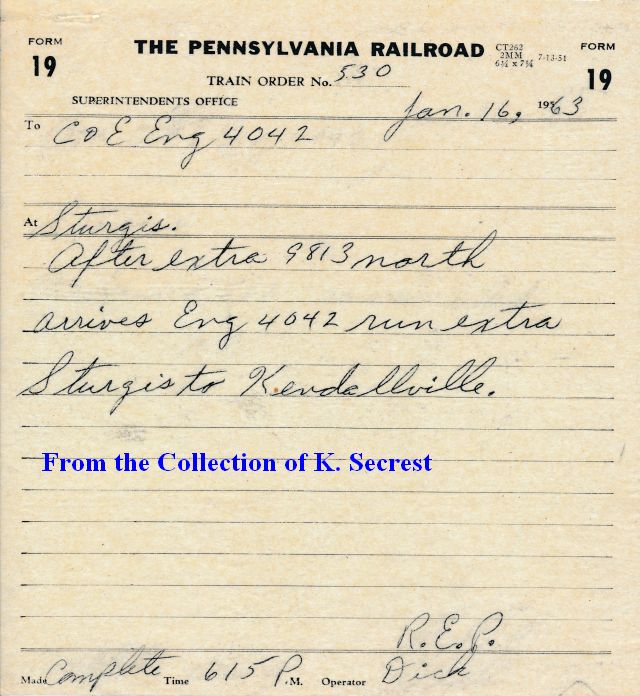 FORM 19 THE PENNSYLVANIA RAILROAD CT262 2MM 6½ x 7¾ 7-13-51 FORM 19
TRAIN ORDER No. 530
SUPERINTENDENTS OFFICE Jan. 16, 1963
To C & E Eng 4042
At Sturgis.
After extra 9813 north
arrives Eng 4042 run extra
Sturgis to Kendallville.
From the Collection of K. Secrest
R.E.P.
Made Complete Time 615 P.M. Operator Dick